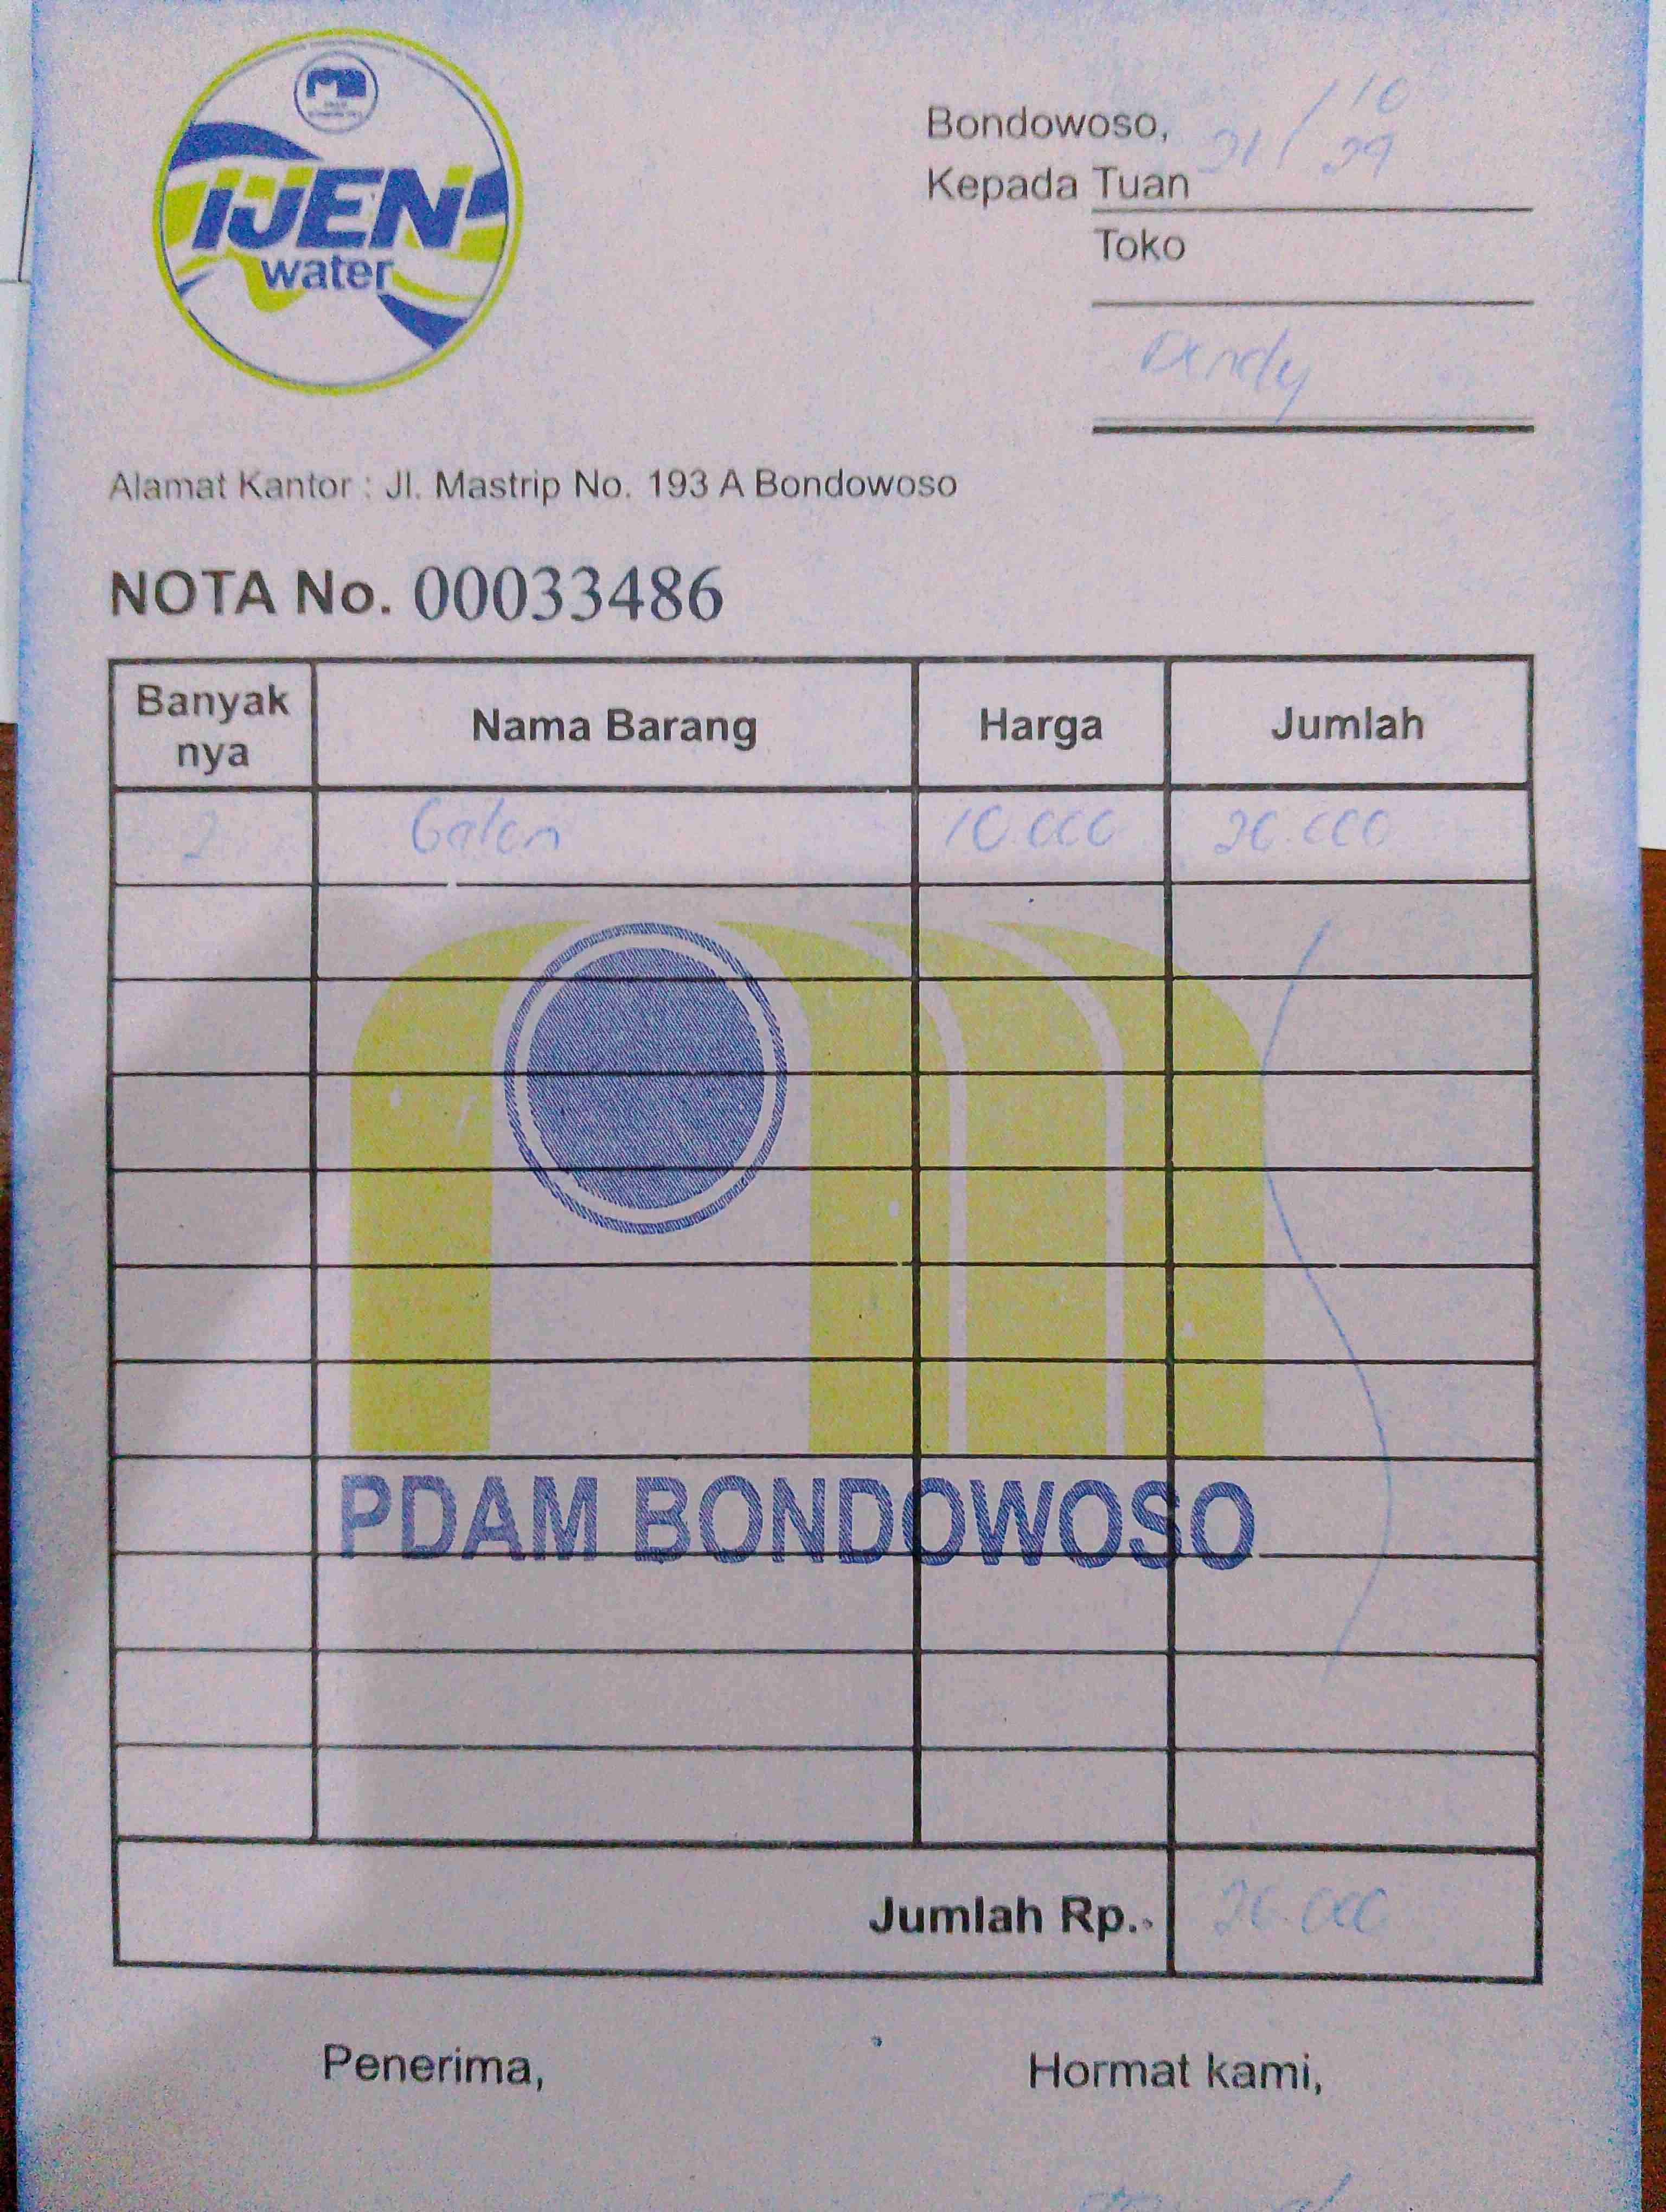 IJEN
water
Bondowoso,
Kepada Tuan
Toko
Dendy
Alamat Kantor : Jl. Mastrip No. 193 A Bondowoso
NOTA No. 00033486
Banyak nya Nama Barang Harga Jumlah
2 Galon 10.000 20.000
PDAM BONDOWOSO
Jumlah Rp. 20.000
Penerima, Hormat kami,